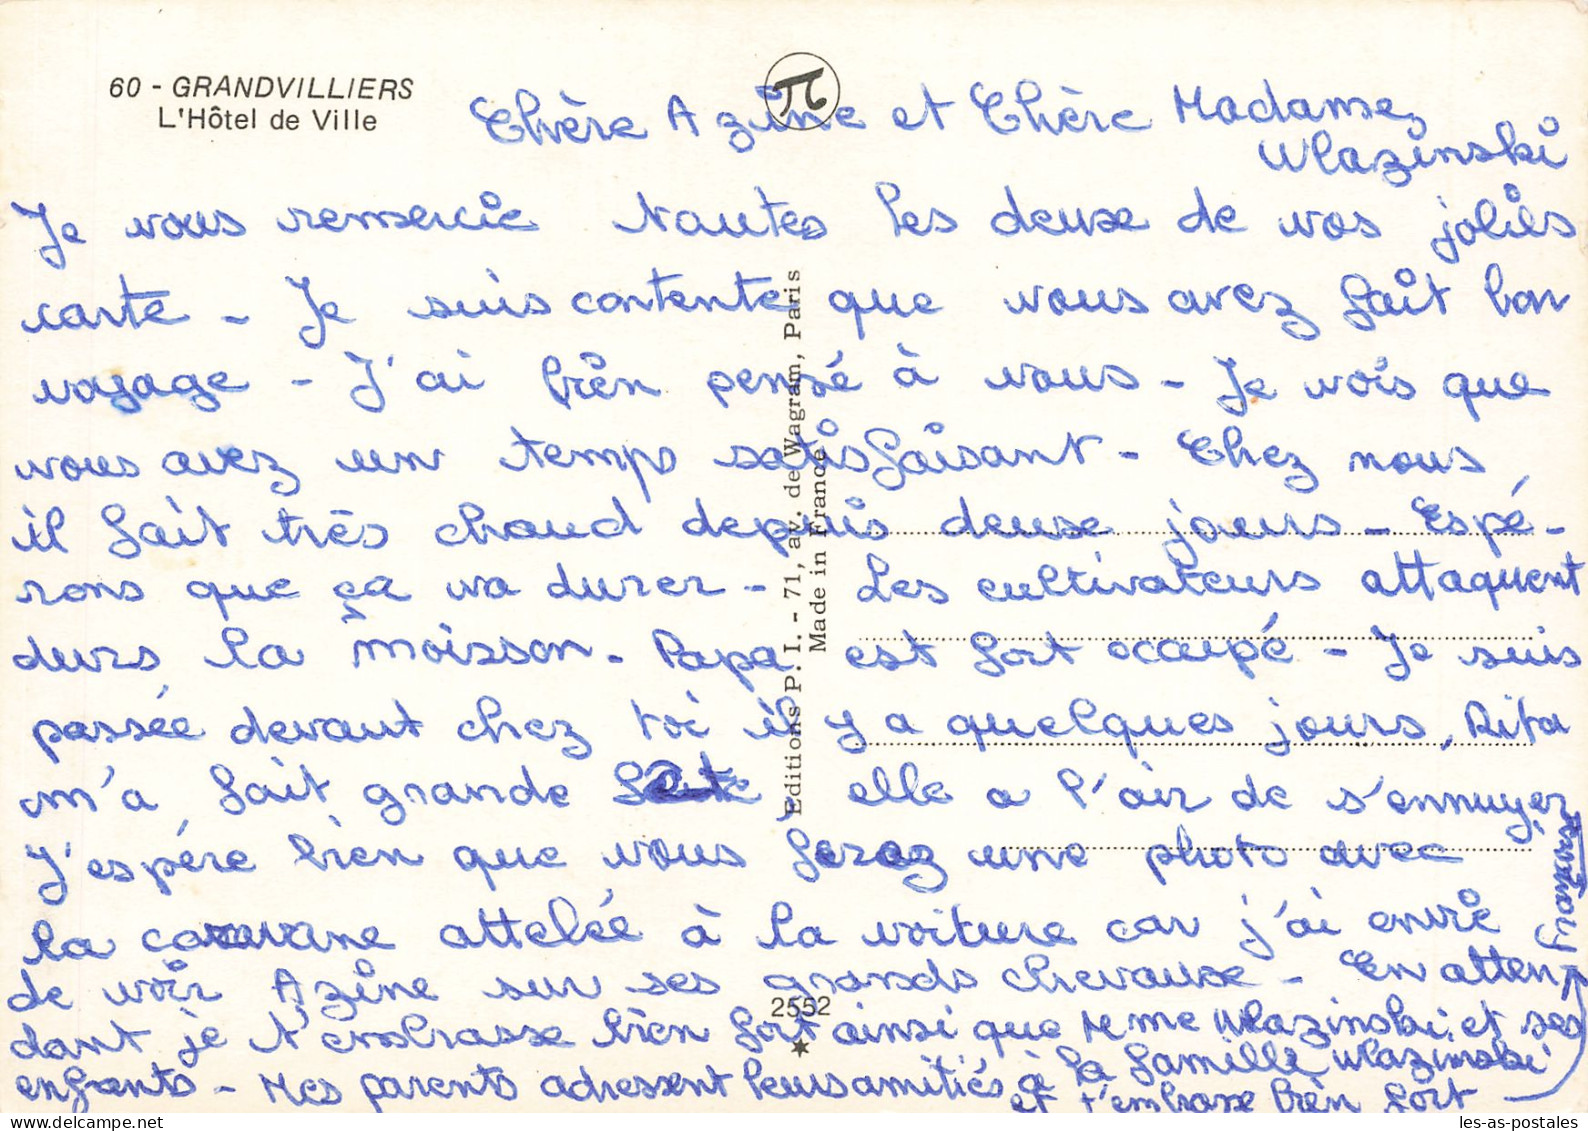 60 - GRANDVILLIERS
L'Hôtel de Ville
Chère Azine et Chère Madame
Wlazinski
Je vous remercie toutes les deuxe de vos jolies
carte - Je suis contente que vous avez fait bon
voyage - J'ai bien pensé à vous - Je vois que
vous avez un temps satisfaisant - Chez nous
il fait très chaud depuis deuxe jours - Espé-
rons que ça va durer - Les cultivateurs attaquent
durs la moisson - Papa est fort occupé - Je suis
passée devant chez toi il y a quelques jours, Rita
m'a fait grande fête, elle a l'air de s'ennuyer
J'espére bien que vous ferez une photo avec
la caravane attelée à la voiture car j'ai envie
de voir Azine sur ses grands chevauxe - En atten
dant je t'embrasse bien fort ainsi que Mme Wlazinski et ses
enfants - Mes parents adressent leurs amitiés à la famille Wlazinski
et t'embrasse bien fort
Editions P. I. - 71, av. de Wagram, Paris
Made in France
2552
les-as-postales